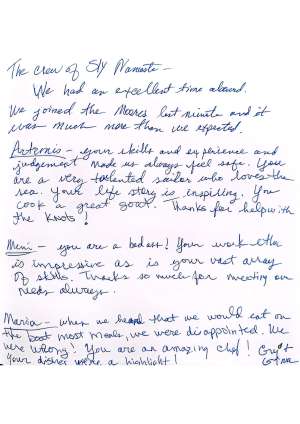 The crew of S/Y Namaste -
We had an excellent time aboard.
We joined the Moores last minute and it
was much more than we expected.
Artemis - your skills and experience and
judgement made us always feel safe. You
are a very talented sailor who loves the
sea. Your life story is inspiring. You
cook a great goat. Thanks for help with
the knots!
Mimi - you are a badass! Your work ethic
is impressive as is your vast array
of skills. Thanks so much for meeting our
needs always.
Maria - when we heard that we would eat on
the boat most meals, we were disappointed. We
were wrong! You are an amazing chef!
Your dishes were a highlight!